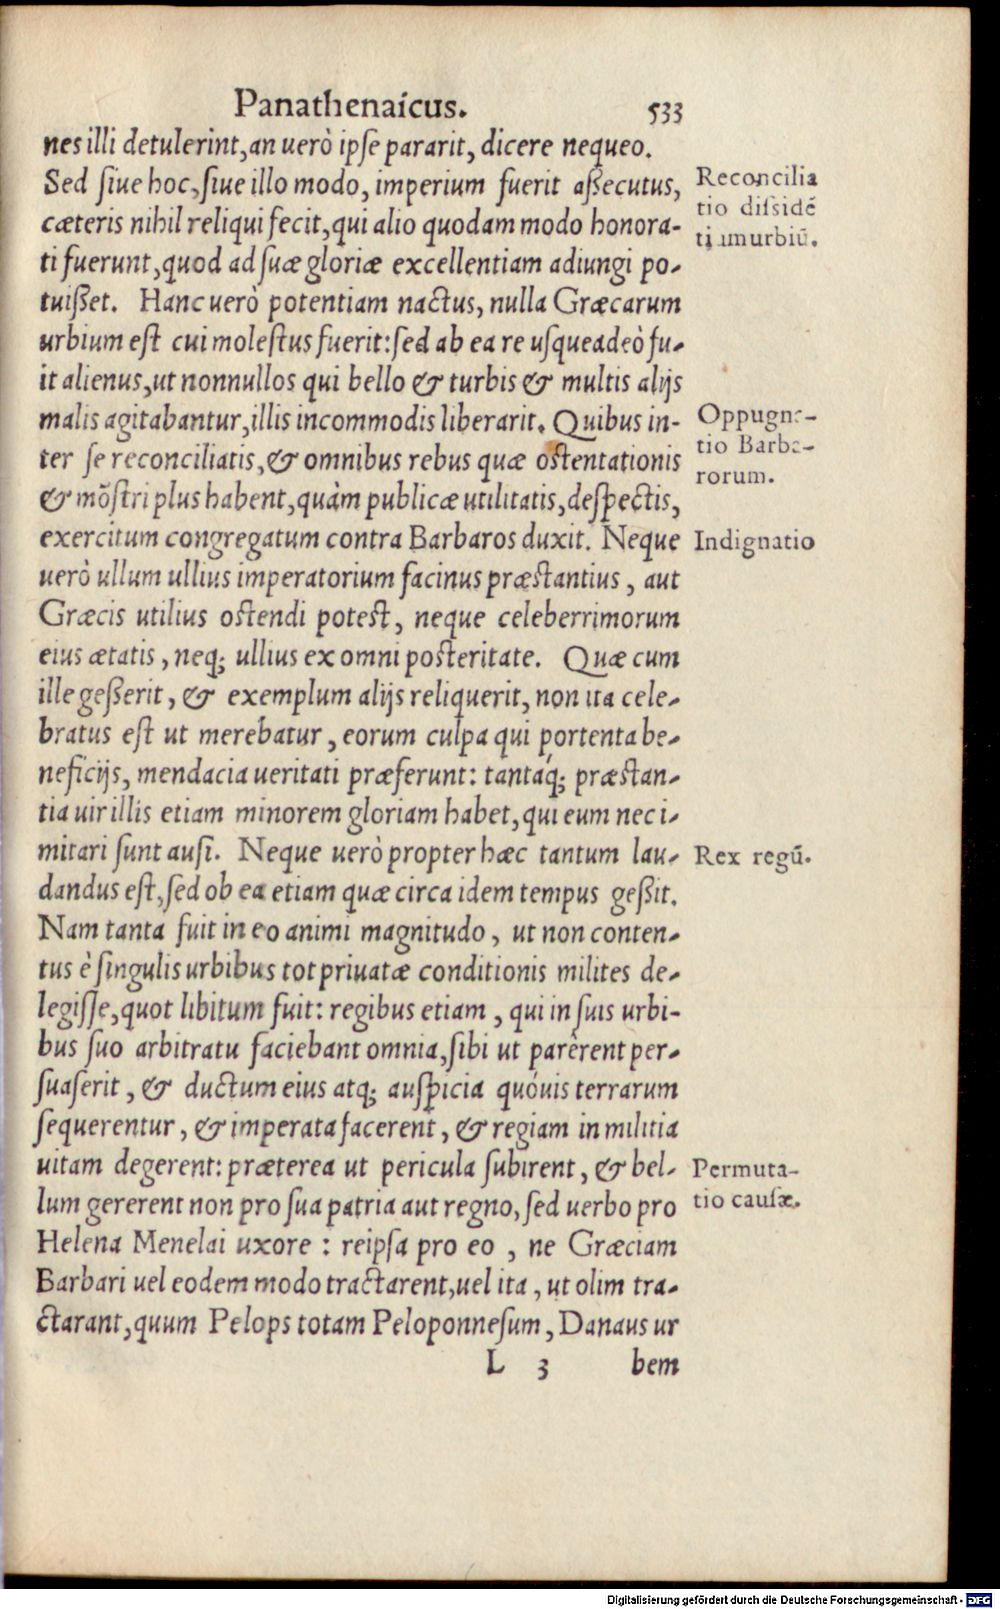 Panathenaicus. 533
nes illi detulerint, an uerò ipse pararit, dicere nequeo.
Sed siue hoc, siue illo modo, imperium fuerit aßecutus,
cæteris nihil reliqui fecit, qui alio quodam modo honora-
ti fuerunt, quod ad suæ gloriæ excellentiam adiungi po-
tuißet. Hanc uerò potentiam nactus, nulla Græcarum
urbium est cui molestus fuerit: sed ab ea re usqueadeò fu-
it alienus, ut nonnullos qui bello & turbis & multis alijs
malis agitabantur, illis incommodis liberarit. Quibus in-
ter se reconciliatis, & omnibus rebus quæ ostentationis
& mõstri plus habent, quàm publicæ utilitatis, despectis,
exercitum congregatum contra Barbaros duxit. Neque
uerò ullum ullius imperatorium facinus præstantius, aut
Græcis utilius ostendi potest, neque celeberrimorum
eius ætatis, neq; ullius ex omni posteritate. Quæ cum
ille geßerit, & exemplum alijs reliquerit, non ita cele-
bratus est ut merebatur, eorum culpa qui portenta be-
neficijs, mendacia ueritati præferunt: tantáq; præstan-
tia uir illis etiam minorem gloriam habet, qui eum nec i-
mitari sunt ausi. Neque uerò propter hæc tantum lau-
dandus est, sed ob ea etiam quæ circa idem tempus geßit.
Nam tanta fuit in eo animi magnitudo, ut non conten-
tus è singulis urbibus tot priuatæ conditionis milites de-
legisse, quot libitum fuit: regibus etiam, qui in suis urbi-
bus suo arbitratu faciebant omnia, sibi ut parêrent per-
suaserit, & ductum eius atq; auspicia quóuis terrarum
sequerentur, & imperata facerent, & regiam in militia
uitam degerent: præterea ut pericula subirent, & bel-
lum gererent non pro sua patria aut regno, sed uerbo pro
Helena Menelai uxore: reipsa pro eo, ne Græciam
Barbari uel eodem modo tractarent, uel ita, ut olim tra-
ctarant, quum Pelops totam Peloponnesum, Danaus ur
L 3 bem
Reconcilia
tio dissidẽ
tium urbiũ.
Oppugna-
tio Barba-
rorum.
Indignatio
Rex regũ.
Permuta-
tio causæ.
Digitalisierung gefördert durch die Deutsche Forschungsgemeinschaft - DFG